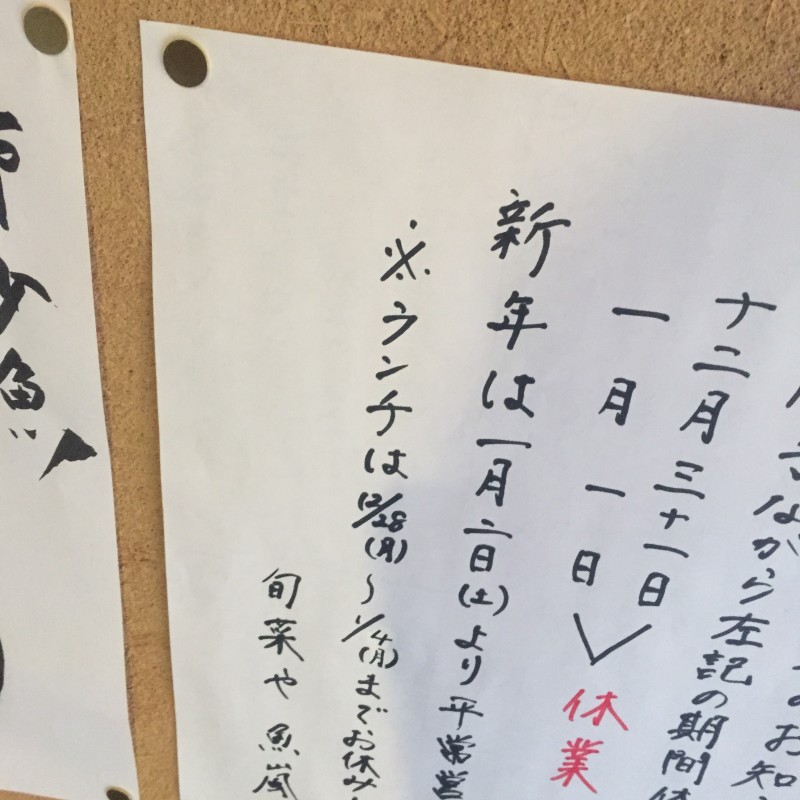 のお知
ながら左記の期間休
十二月三十一日
一月一日
休業
新年は一月二日(土)より平常営
※ランチは12/28(月)～1/4(月)までお休み
旬菜や 魚嵐